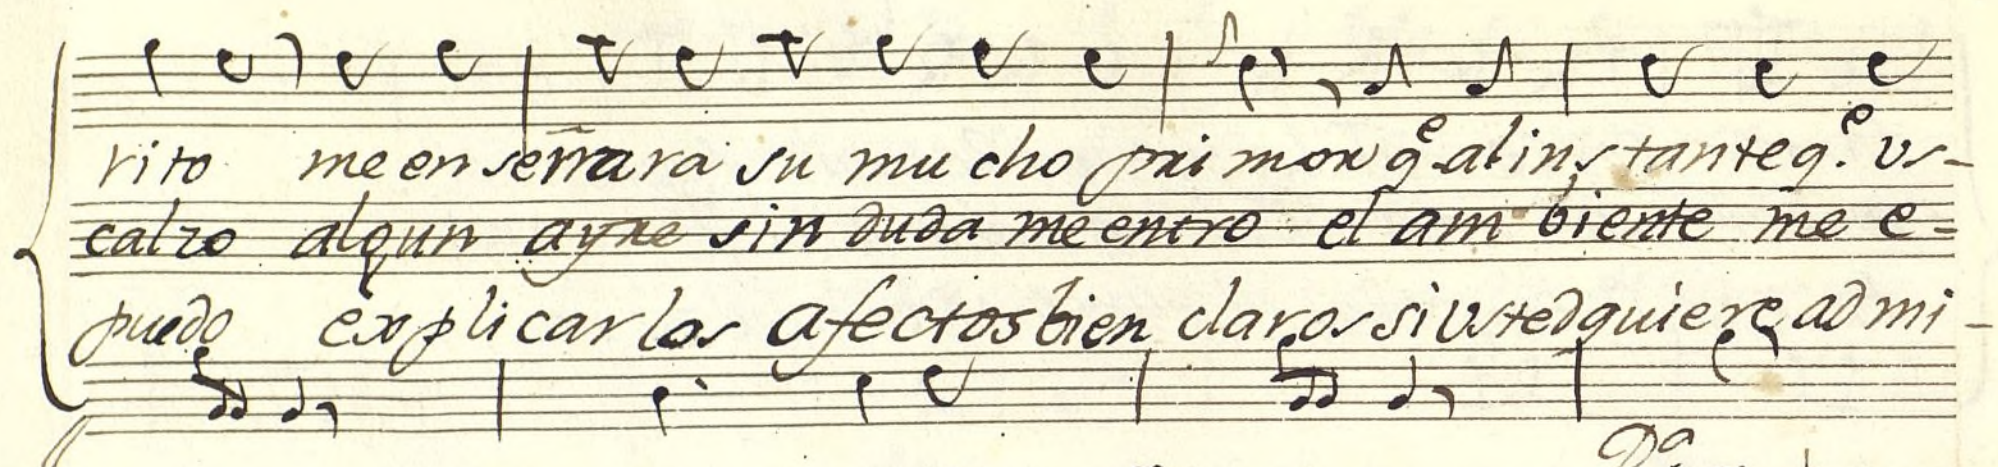 rito me en señara su mu cho primor qe al ins tante q.e us-
calzo algun ayre sin duda me entro el am biente me e-
puedo explicar los afectos bien claros si usted quiere ad mi-
Da